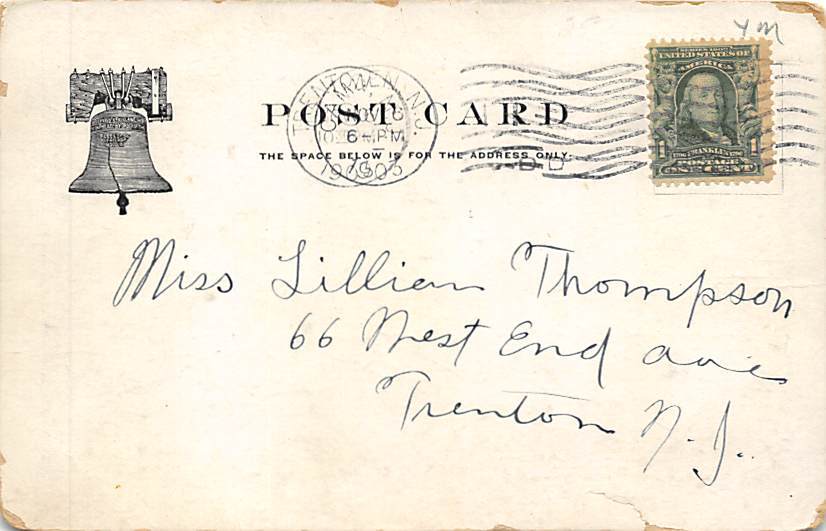 ym
SERIES 1902
UNITED STATES OF
AMERICA
1 FRANKLIN 1
POSTAGE
ONE CENT
TRENTON, N.J.
6-PM
1903
POST CARD
THE SPACE BELOW IS FOR THE ADDRESS ONLY.
Miss Lillian Thompson
66 West End ave
Trenton N.J.